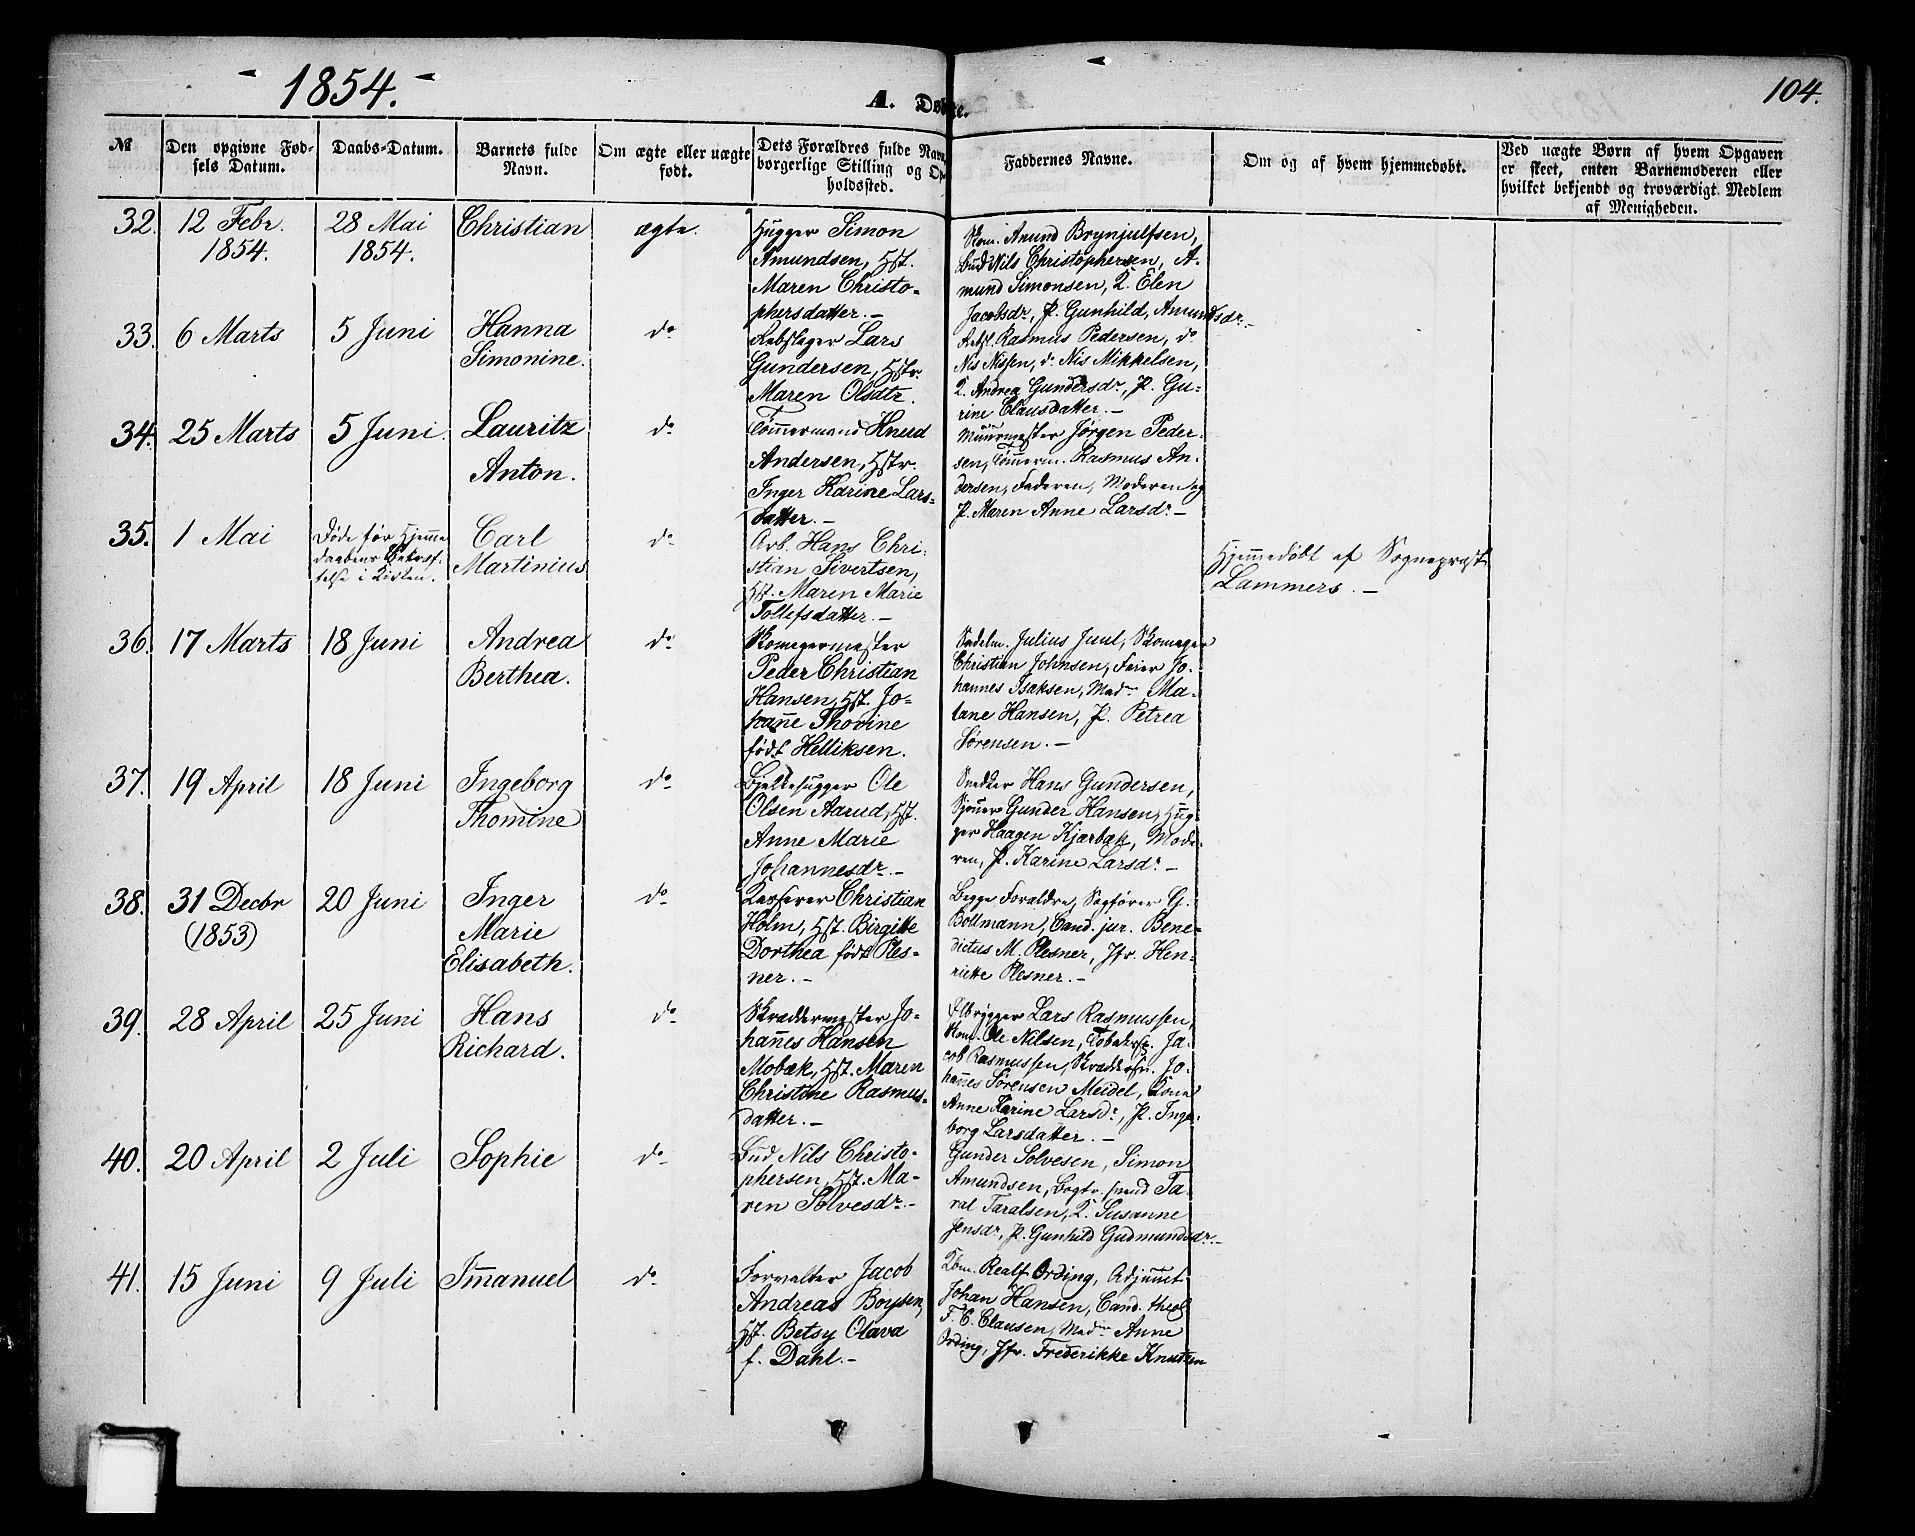 1854.
A. Døbte.
104.
№
Den opgivne Fød-
sels Datum.
Daabs-Datum.
Barnets fulde
Navn.
Om ægte eller uægte
født.
Dets Forældres fulde Navn,
borgerlige Stilling og Op-
holdssted.
Faddernes Navne.
Om og af hvem hjemmedøbt.
Ved uægte Børn af hvem Opgaven
er skeet, enten Barnemoderen eller
hvilket bekjendt og troværdigt Medlem
af Menigheden.
32.
12 Febr.
1854.
28 Mai
1854.
Christian
ægte.
Hugger Simon
Amundsen, Hst.
Maren Christo-
phersdatter.-
Skom. Amund Brynjulfsen,
Bud Nils Christophersen, A-
mund Simonsen, K. Elen
Jacobsdr, P. Gunhild Amundsdr.-
33.
6 Marts
5 Juni
Hanna
Simonine.
do
Rebslager Lars
Gundersen, Hstr.
Maren Olsdtr.
Rebsl. Rasmus Pedersen, do
Nis Nissen, do Nis Mikkelsen,
K. Andrea Gundersdr, P. Gu-
rine Clausdatter.-
34.
25 Marts
5 Juni.
Lauritz
Anton.
do
Tömmermand Knud
Andersen, Hstr.
Inger Karine Lars-
datter.-
Muurmester Jörgen Peder-
sen, Tömmerm. Rasmus An-
dersen, Faderen, Moderen og
P. Maren Anne Larsdr-
35.
1 Mai
Døde før Hjemme
daabens Bekræf-
telse i Kirken.
Carl
Martinius
do
Arb. Hans Chri-
stian Sivertsen,
Hst. Maren Marie
Tollefsdatter.-
Hjemmedøbt af Sognepræst
Lammers.-
36.
17 Marts
18 Juni
Andrea
Berthea.
do
Skomagermester
Peder Christian
Hansen, Hst. Jo-
hanne Thovine
født Helliksen.
Sadelm. Julius Juul, Skomager
Christian Johnsen, Feier Jo-
hannes Isaksen, Madm Ma-
lane Hansen, P. Petrea
Sörensen.-
37.
19 April
18 Juni
Ingeborg
Thomine
do
Bjelkehugger Ole
Olsen Aarud, Hst.
Anne Marie
Johannesdr.-
Snedker Hans Gundersen,
Sjouer Gunder Hansen, Hug-
ger Haagen Kjærbak, Mode-
ren, P. Karine Larsdr-
38.
31 Decbr
(1853)
20 Juni
Inger
Marie
Elisabeth.
do
Kasserer Christian
Holm, Hst. Birgitte
Dorthea født Ples-
ner.-
Begge Forældre, Sagfører G.
Bollmann, Cand. jur. Bene-
dictus M. Plesner, Jfr. Hen-
riette Plesner.-
39.
28 April
25 Juni
Hans
Richard.
do
Skræddermester Jo-
hannes Hansen
Mobæk, Hst. Maren
Christine Rasmus-
datter.-
Ølbrygger Lars Rasmussen,
Skom. Ole Nilsen, Ja-
cob Rasmussen, Jo-
hannes Sörensen Meidel, Kone
Anne Karine Larsdr, P. Inge-
borg Larsdatter.-
40.
20 April
2 Juli
Sophie
do
Bud Nils Christo-
phersen, Hst. Ma-
ren Solvesdr-
Gunder Solvesen, Simon
Amundsen, Bogtr. svend Ta-
ral Taralsen, K. Susanne
Jensdr, P. Gunhild Gudmundsdr.-
41.
15 Juni
9 Juli
Immanuel
do
Forvalter Jacob
Andreas Boysen,
Hst. Betsy Olava
f. Dahl.-
Kbm. Realf Ording, Adjunct
Johan Hansen, Cand. theol
F. C. Clausen, Madm Anne
Ording, Jfr. Frederikke Knudsen